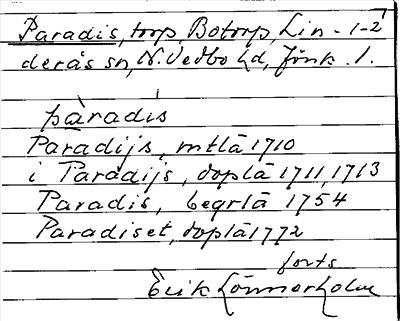 Paradis, torp, Botorp, Lin- 1-2
derås sn, N. Vedbo hd, Jönk. l.
pàradis
Paradijs, mtlä 1710
i Paradijs, doplä 1711, 1713
Paradis, begrlä 1754
Paradiset, doplä 1772
forts
Erik Lönnerholm